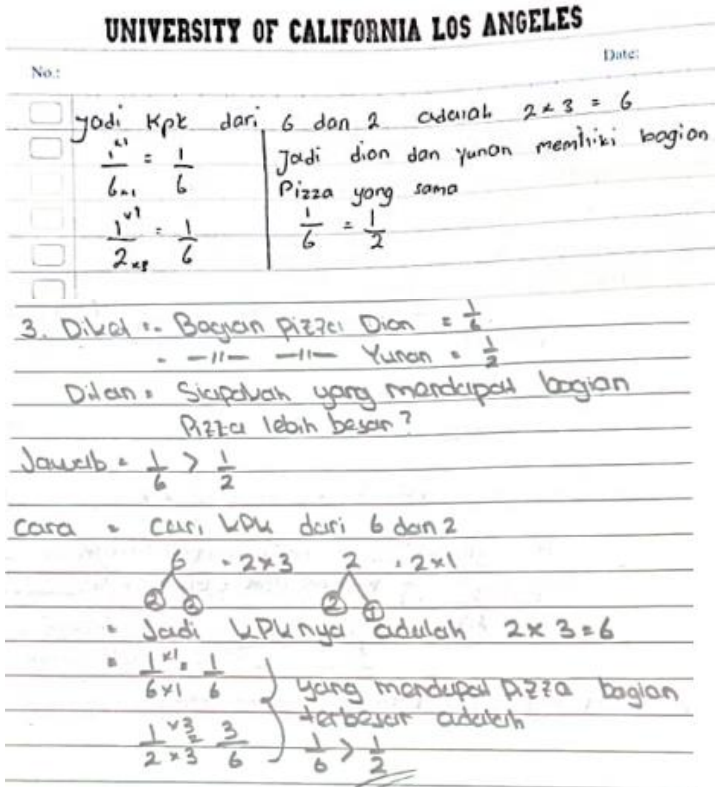 UNIVERSITY OF CALIFORNIA LOS ANGELES
No.:
Date:
Jadi Kpk dari 6 dan 2 adalah 2 x 3 = 6
1 x1 / 6 x1 = 1/6
Jadi dion dan yunan memiliki bagian
Pizza yang sama
1 x1 / 2 x3 = 1/6
1/6 = 1/2
3. Diket :- Bagian Pizza Dion = 1/6
- -11- -11- Yunan = 1/2
Ditan = Siapakah yang mendapat bagian
Pizza lebih besar?
Jawab = 1/6 > 1/2
cara = cari KPK dari 6 dan 2
6 = 2x3 2 = 2x1
2 3 2 1
= Jadi KPKnya adalah 2 x 3 = 6
= 1 x1 / 6 x1 = 1/6
yang mendapat pizza bagian
terbesar adalah
1 x3 / 2 x3 = 3/6
1/6 > 1/2